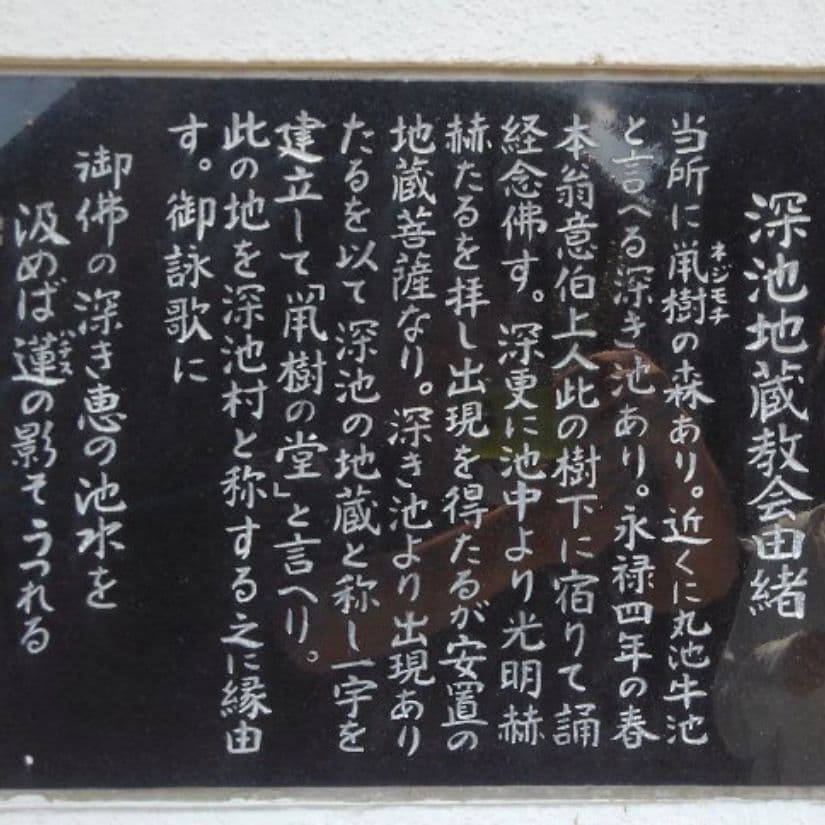 深池地蔵教会由緒
当所に鼡樹の森あり。近くに丸池牛池
ネジモチ
と言へる深き池あり。永禄四年の春
本翁意伯上人此の樹下に宿りて誦
経念佛す。深更に池中より光明赫
赫たるを拝し出現を得たるが安置の
地蔵菩薩なり。深き池より出現あり
たるを以て深池の地蔵と称し一宇を
建立して「鼡樹の堂」と言へり。
此の地を深池村と称する之に縁由
す。御詠歌に
御佛の深き恵の池水を
汲めば蓮の影そうつれる
ハチス